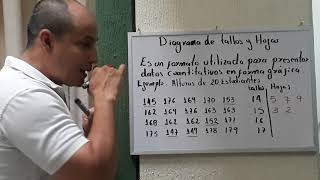 Diagrama de tallos y Hojas
Es un formato utilizado para presentar
datos cuantitativos en forma gráfica.
Ejemplo. Alturas de 20 Estudiantes
tallos Hojas
145 176 169 170 153 14 5 7 9
162 169 176 163 163 15 3 2
168 162 166 152 171 16
175 147 149 178 179 17